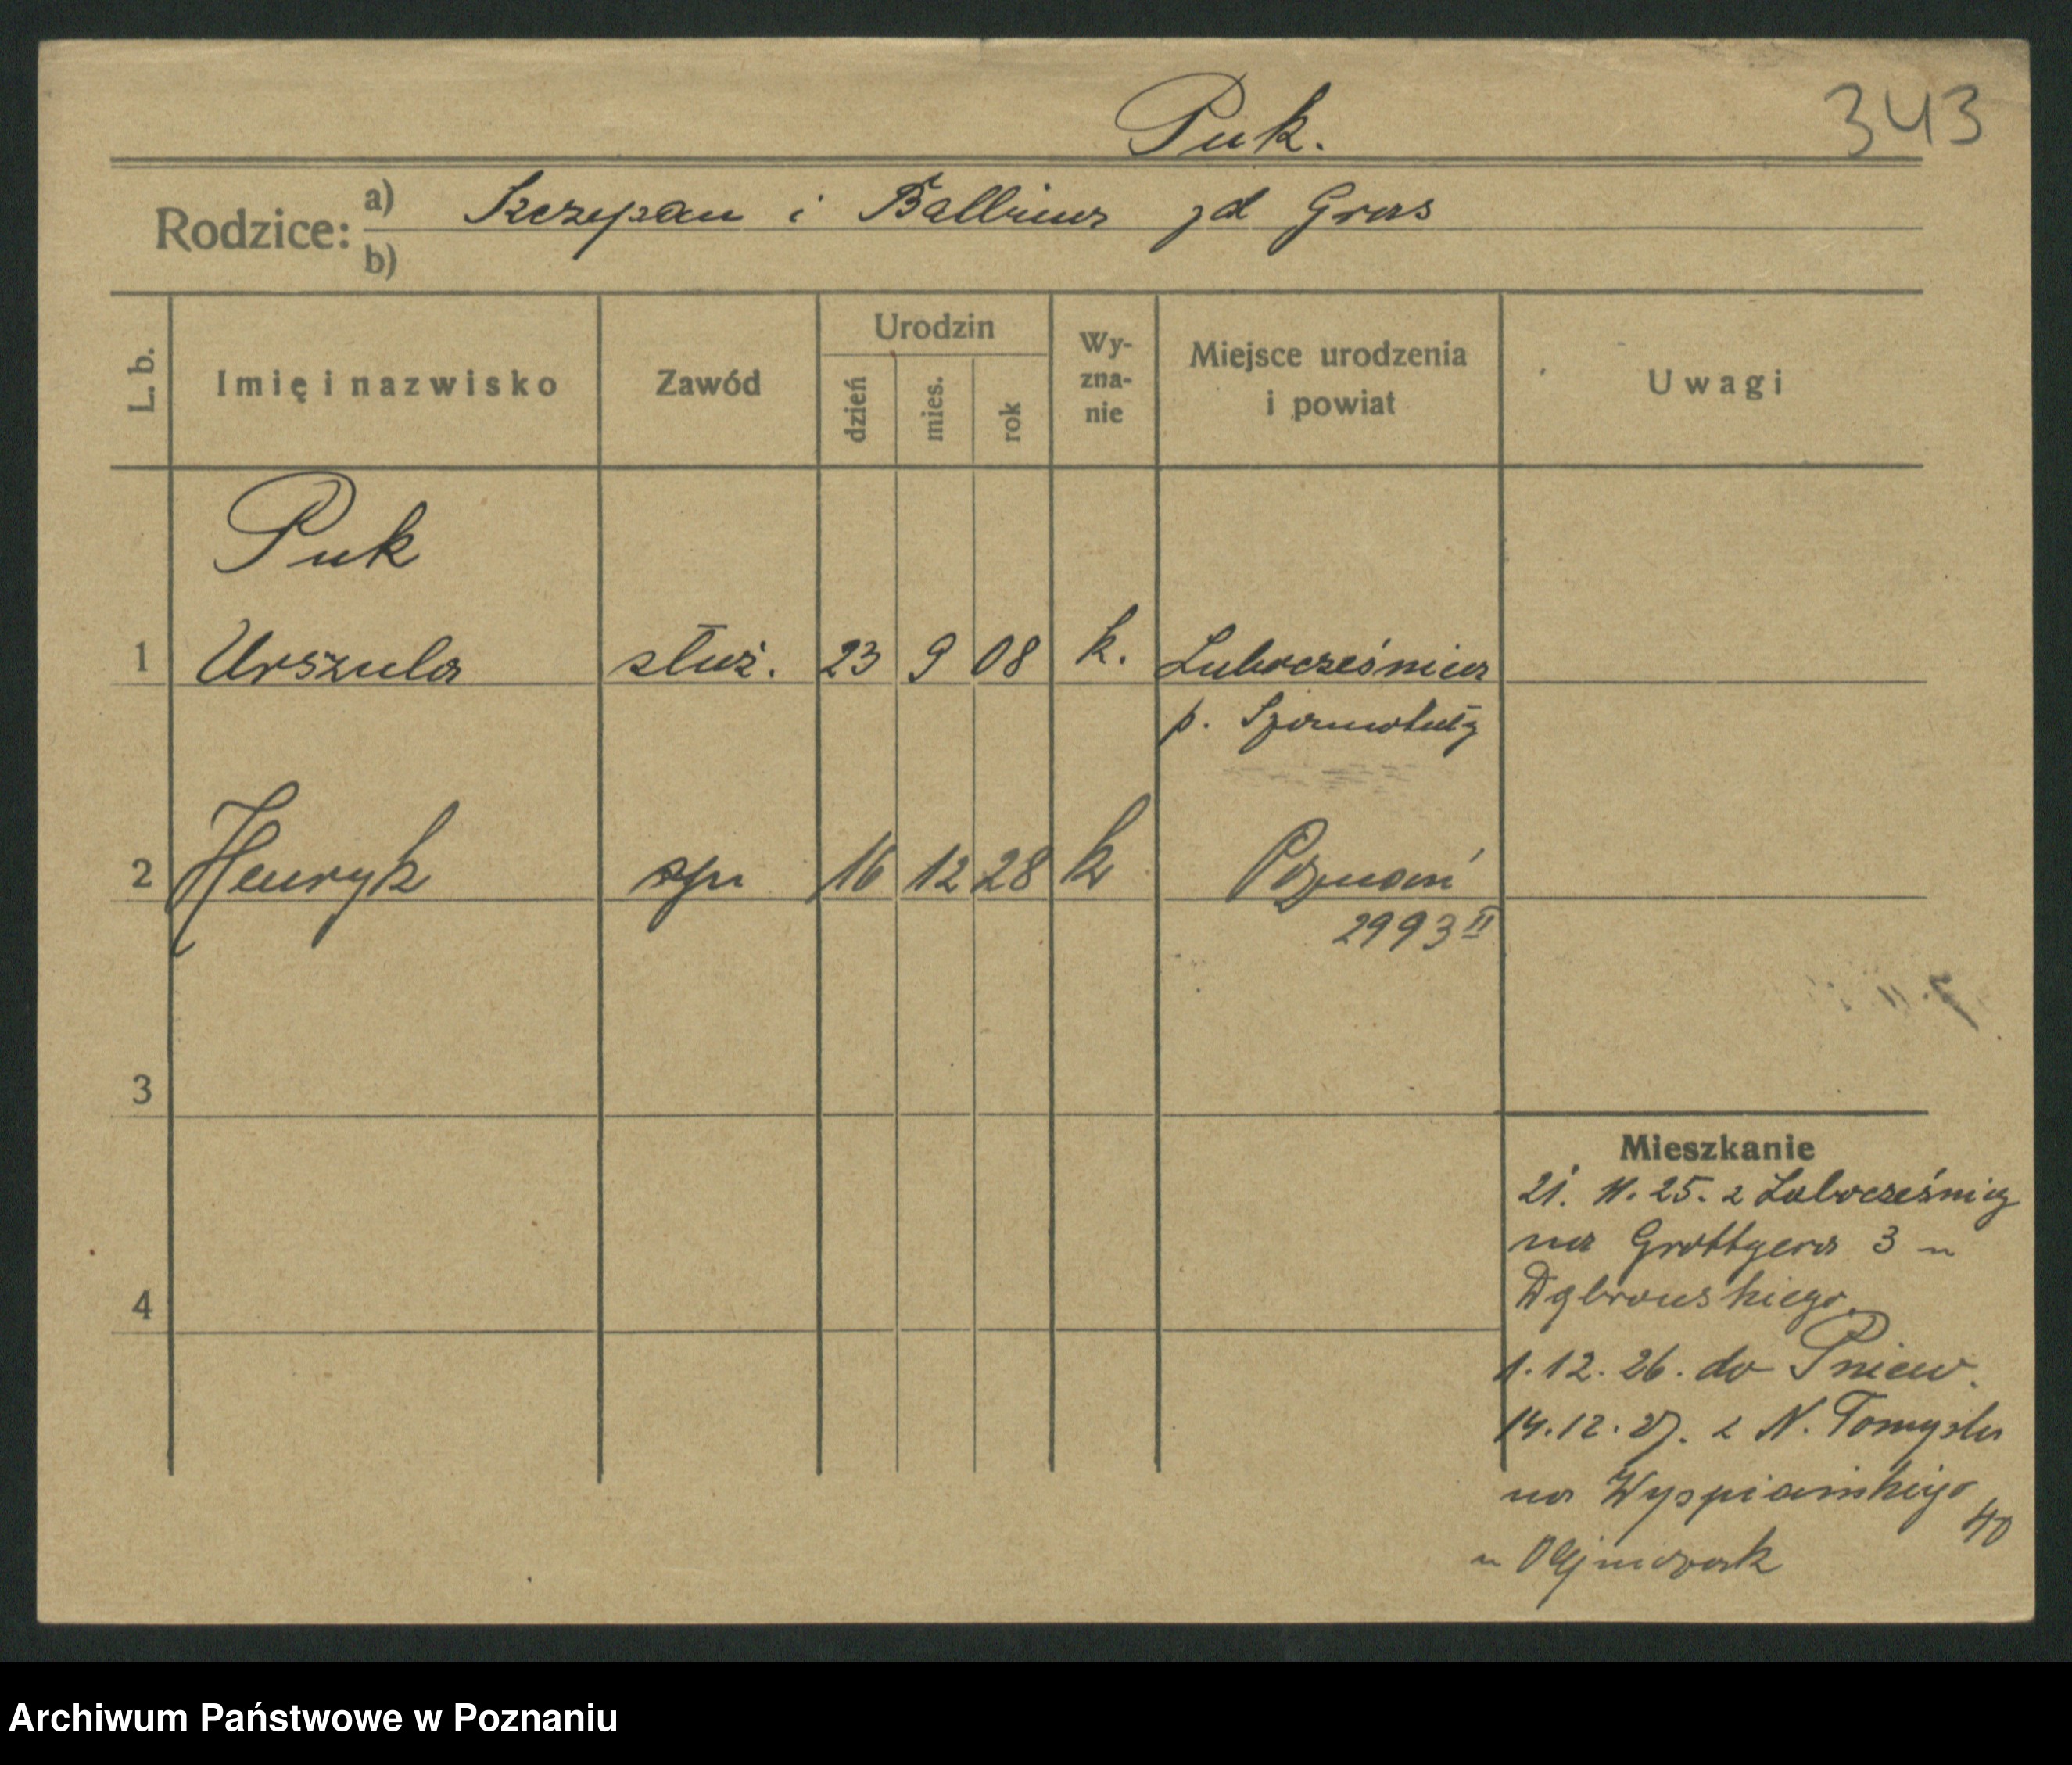 Puk.
343
Rodzice: a) Szczepan i Balbina zd Gras
b)
L. b.
Imię i nazwisko
Zawód
Urodzin
dzień
mies.
rok
Wy-
zna-
nie
Miejsce urodzenia
i powiat
Uwagi
Puk
1 Urszula służ. 23 9 08 k. Lubocześnica
p. Szamotuły
2 Henryk syn 16 12 28 k Poznań
2993 II
3
4
Mieszkanie
21. 11. 25. z Lubocześnicy
na Grottgera 3 u
Dąbrowskiego.
1. 12. 26. do Pniew.
14. 12. 27. z N. Tomyśla
na Wyspiańskiego
40
u Olejniczak
Archiwum Państwowe w Poznaniu